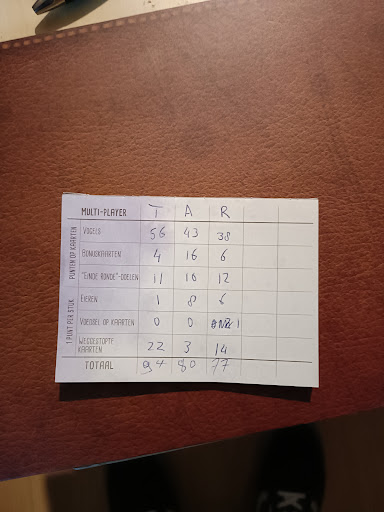 MULTI-PLAYER T A R
PUNTEN OP KAARTEN
VOGELS 56 43 38
BONUSKAARTEN 4 16 6
"EINDE RONDE"-DOELEN 11 10 12
1 PUNT PER STUK
EIEREN 1 8 6
VOEDSEL OP KAARTEN 0 0 1
WEGGESTOPTE KAARTEN 22 3 14
TOTAAL 94 80 77